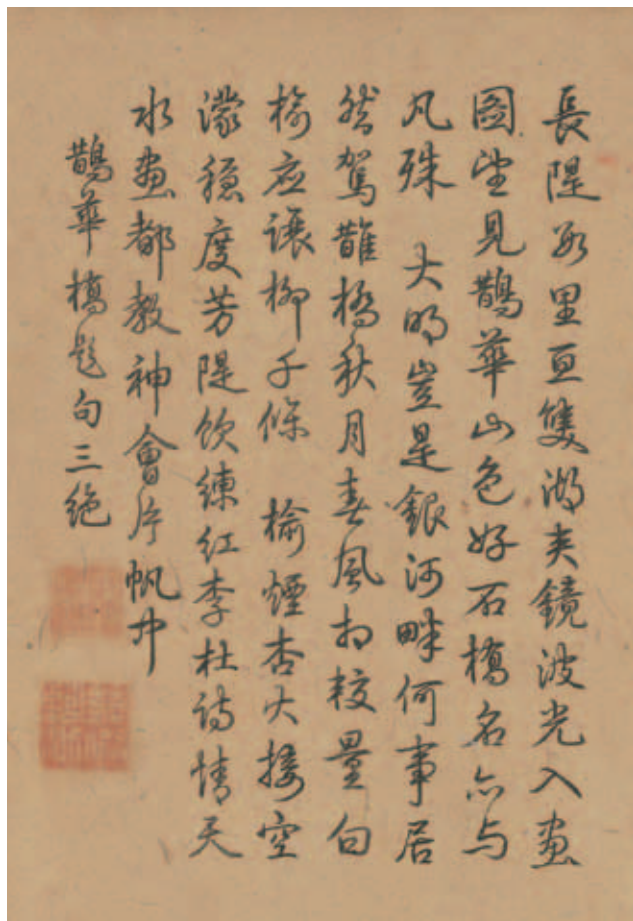 長隄數里亙雙湖夾鏡波光入畫
圖望見鵲華山色好石橋名亦与
凡殊 大明豈是銀河畔何事居
然駕鵲橋秋月春風相較量白
榆应讓柳千條 榆煙杏火接空
濛穩度芳隄飲練紅李杜詩情天
水畫都教神會片帆中
鵲華橋題句三絕